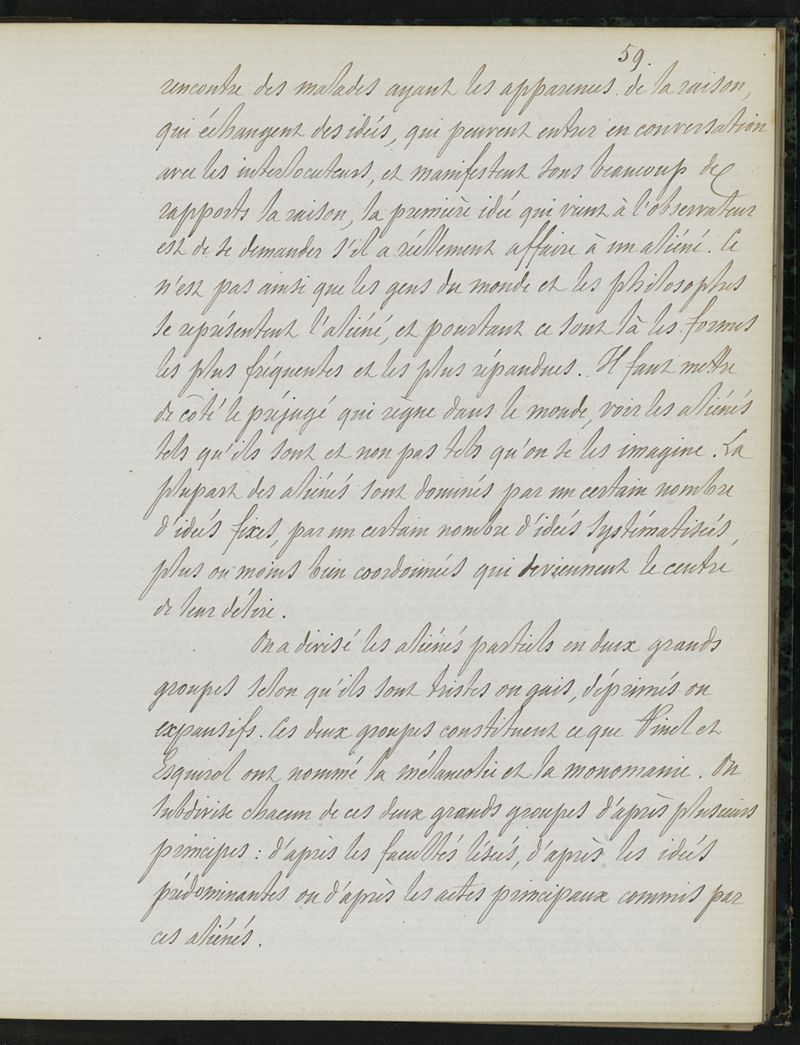 59.
rencontre des malades ayant les apparences de la raison,
qui échangent des idées, qui peuvent entrer en conversation
avec les interlocuteurs, et manifestent sous beaucoup de
rapports la raison, la première idée qui vient à l'observateur
est de se demander s'il a réellement affaire à un aliéné. Ce
n'est pas ainsi que les gens du monde et les philosophes
se représentent l'aliéné, et pourtant ce sont là les formes
les plus fréquentes et les plus répandues. Il faut mettre
de côté le préjugé qui règne dans le monde, voir les aliénés
tels qu'ils sont et non pas tels qu'on se les imagine. La
plupart des aliénés sont dominés par un certain nombre
d'idées fixes, par un certain nombre d'idées systématisées,
plus ou moins bien coordonnées qui deviennent le centre
de leur délire.
On a divisé les aliénés partiels en deux grands
groupes selon qu'ils sont tristes ou gais, déprimés ou
expansifs. Ces deux groupes constituent ce que Pinel et
Esquirol ont nommé la mélancolie et la monomanie. On
subdivise chacun de ces deux grands groupes d'après plusieurs
principes : d'après les facultés lésées, d'après les idées
prédominantes ou d'après les actes principaux commis par
ces aliénés.